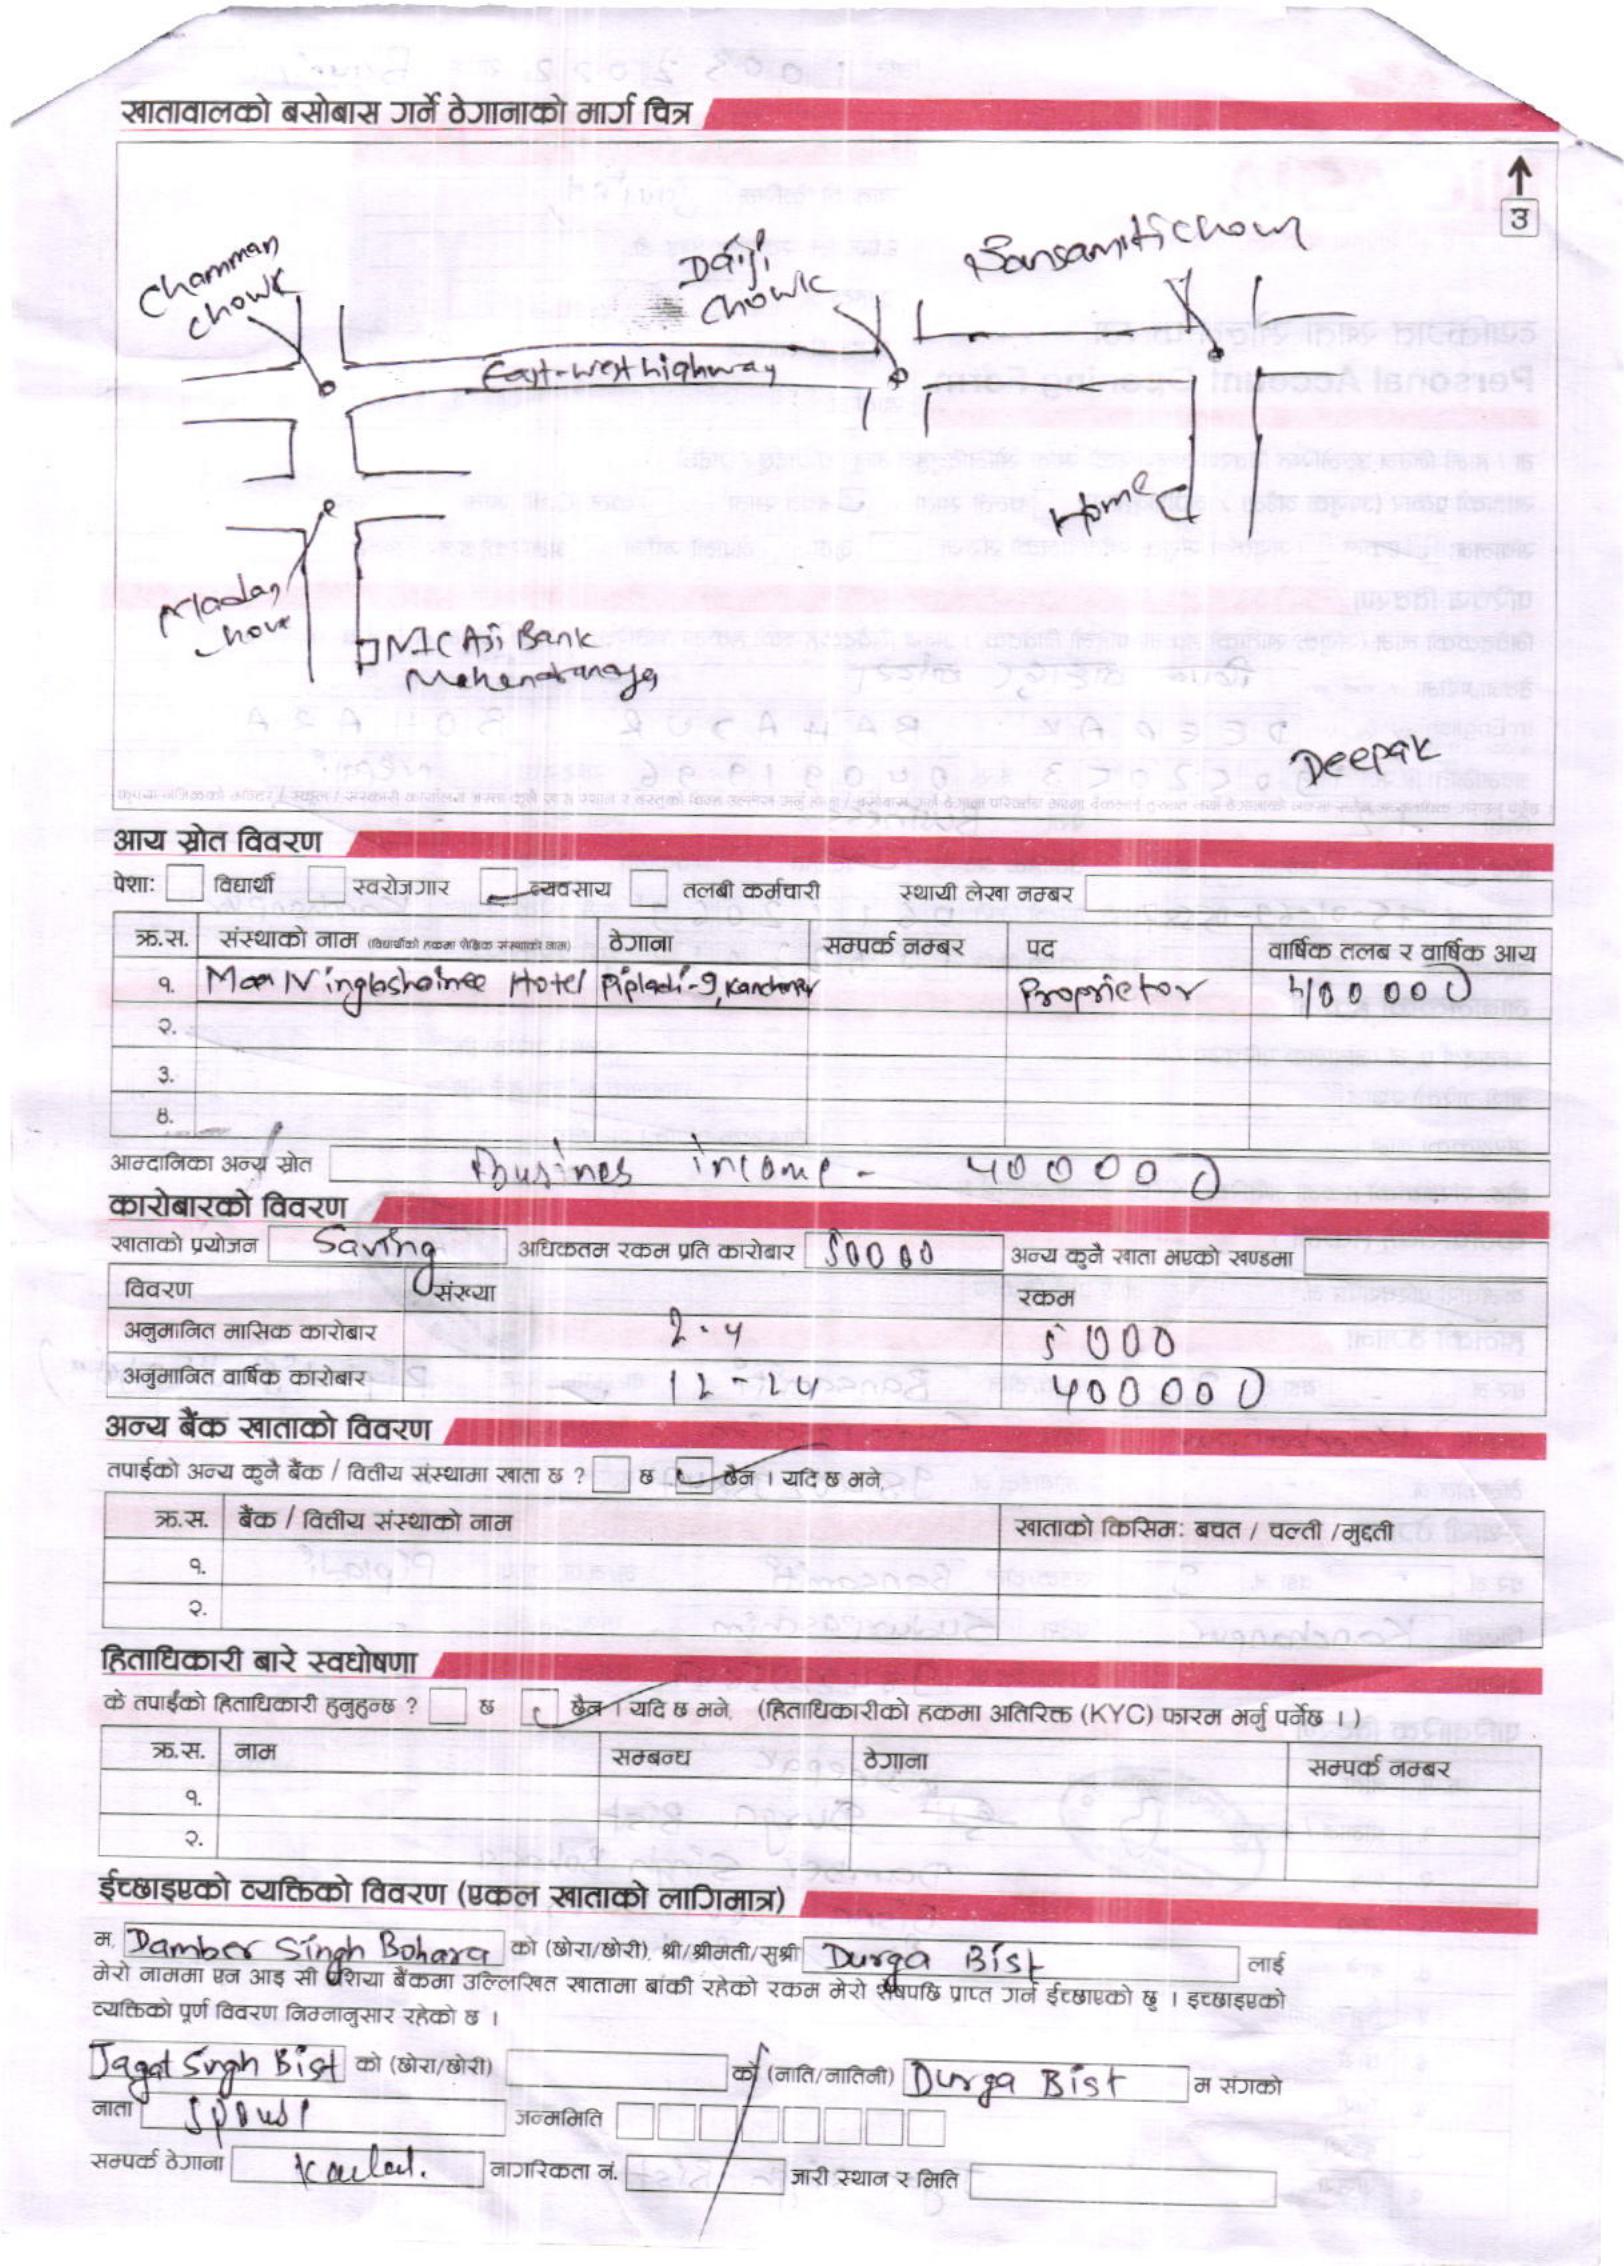 खातावालको बसोबास गर्ने ठेगानाको मार्ग चित्र
उ
Chamman
Chowk
Daiji
Chowk
Bansamiti Chowk
East-west highway
Home
NIC Asia Bank
Mahendranagar
Deepak
आय स्रोत विवरण
पेशा: विद्यार्थी स्वरोजगार व्यवसाय तलबी कर्मचारी स्थायी लेखा नम्बर
क्र.स. संस्थाको नाम (विद्यार्थीको हकमा शैक्षिक संस्थाको नाम) ठेगाना सम्पर्क नम्बर पद वार्षिक तलब र वार्षिक आय
१. Maa Ninglashainee Hotel Pipladi-9, Kanchanpur Proprietor 400000
२.
३.
४.
आम्दानिका अन्य स्रोत Busines income - 400000
कारोबारको विवरण
खाताको प्रयोजन Saving अधिकतम रकम प्रति कारोबार 50000 अन्य कुनै खाता भएको खण्डमा
विवरण संख्या रकम
अनुमानित मासिक कारोबार 2-4 5000
अनुमानित वार्षिक कारोबार 12-24 400000
अन्य बैंक खाताको विवरण
तपाईको अन्य कुनै बैंक / वितीय संस्थामा खाता छ ? छ छैन । यदि छ भने,
क्र.स. बैंक / वितीय संस्थाको नाम खाताको किसिम: बचत / चल्ती /मुद्दती
१.
२.
हिताधिकारी बारे स्वघोषणा
के तपाईंको हिताधिकारी हुनुहुन्छ ? छ छैन । यदि छ भने, (हिताधिकारीको हकमा अतिरिक्त (KYC) फारम भर्नु पर्नेछ ।)
क्र.स. नाम सम्बन्ध ठेगाना सम्पर्क नम्बर
१.
२.
ईच्छाइएको व्यक्तिको विवरण (एकल खाताको लागिमात्र)
म, Damber Singh Bohara को (छोरा/छोरी), श्री/श्रीमती/सुश्री Durga Bist लाई
मेरो नाममा एन आइ सी एशिया बैंकमा उल्लिखित खातामा बांकी रहेको रकम मेरो शेषपछि प्राप्त गर्न ईच्छाएको छु । इच्छाइएको
व्यक्तिको पूर्ण विवरण निम्नानुसार रहेको छ ।
Jagat Singh Bist को (छोरा/छोरी) को (नाति/नातिनी) Durga Bist म संगको
नाता Spouse जन्ममिति
सम्पर्क ठेगाना नागरिकता नं. जारी स्थान र मिति